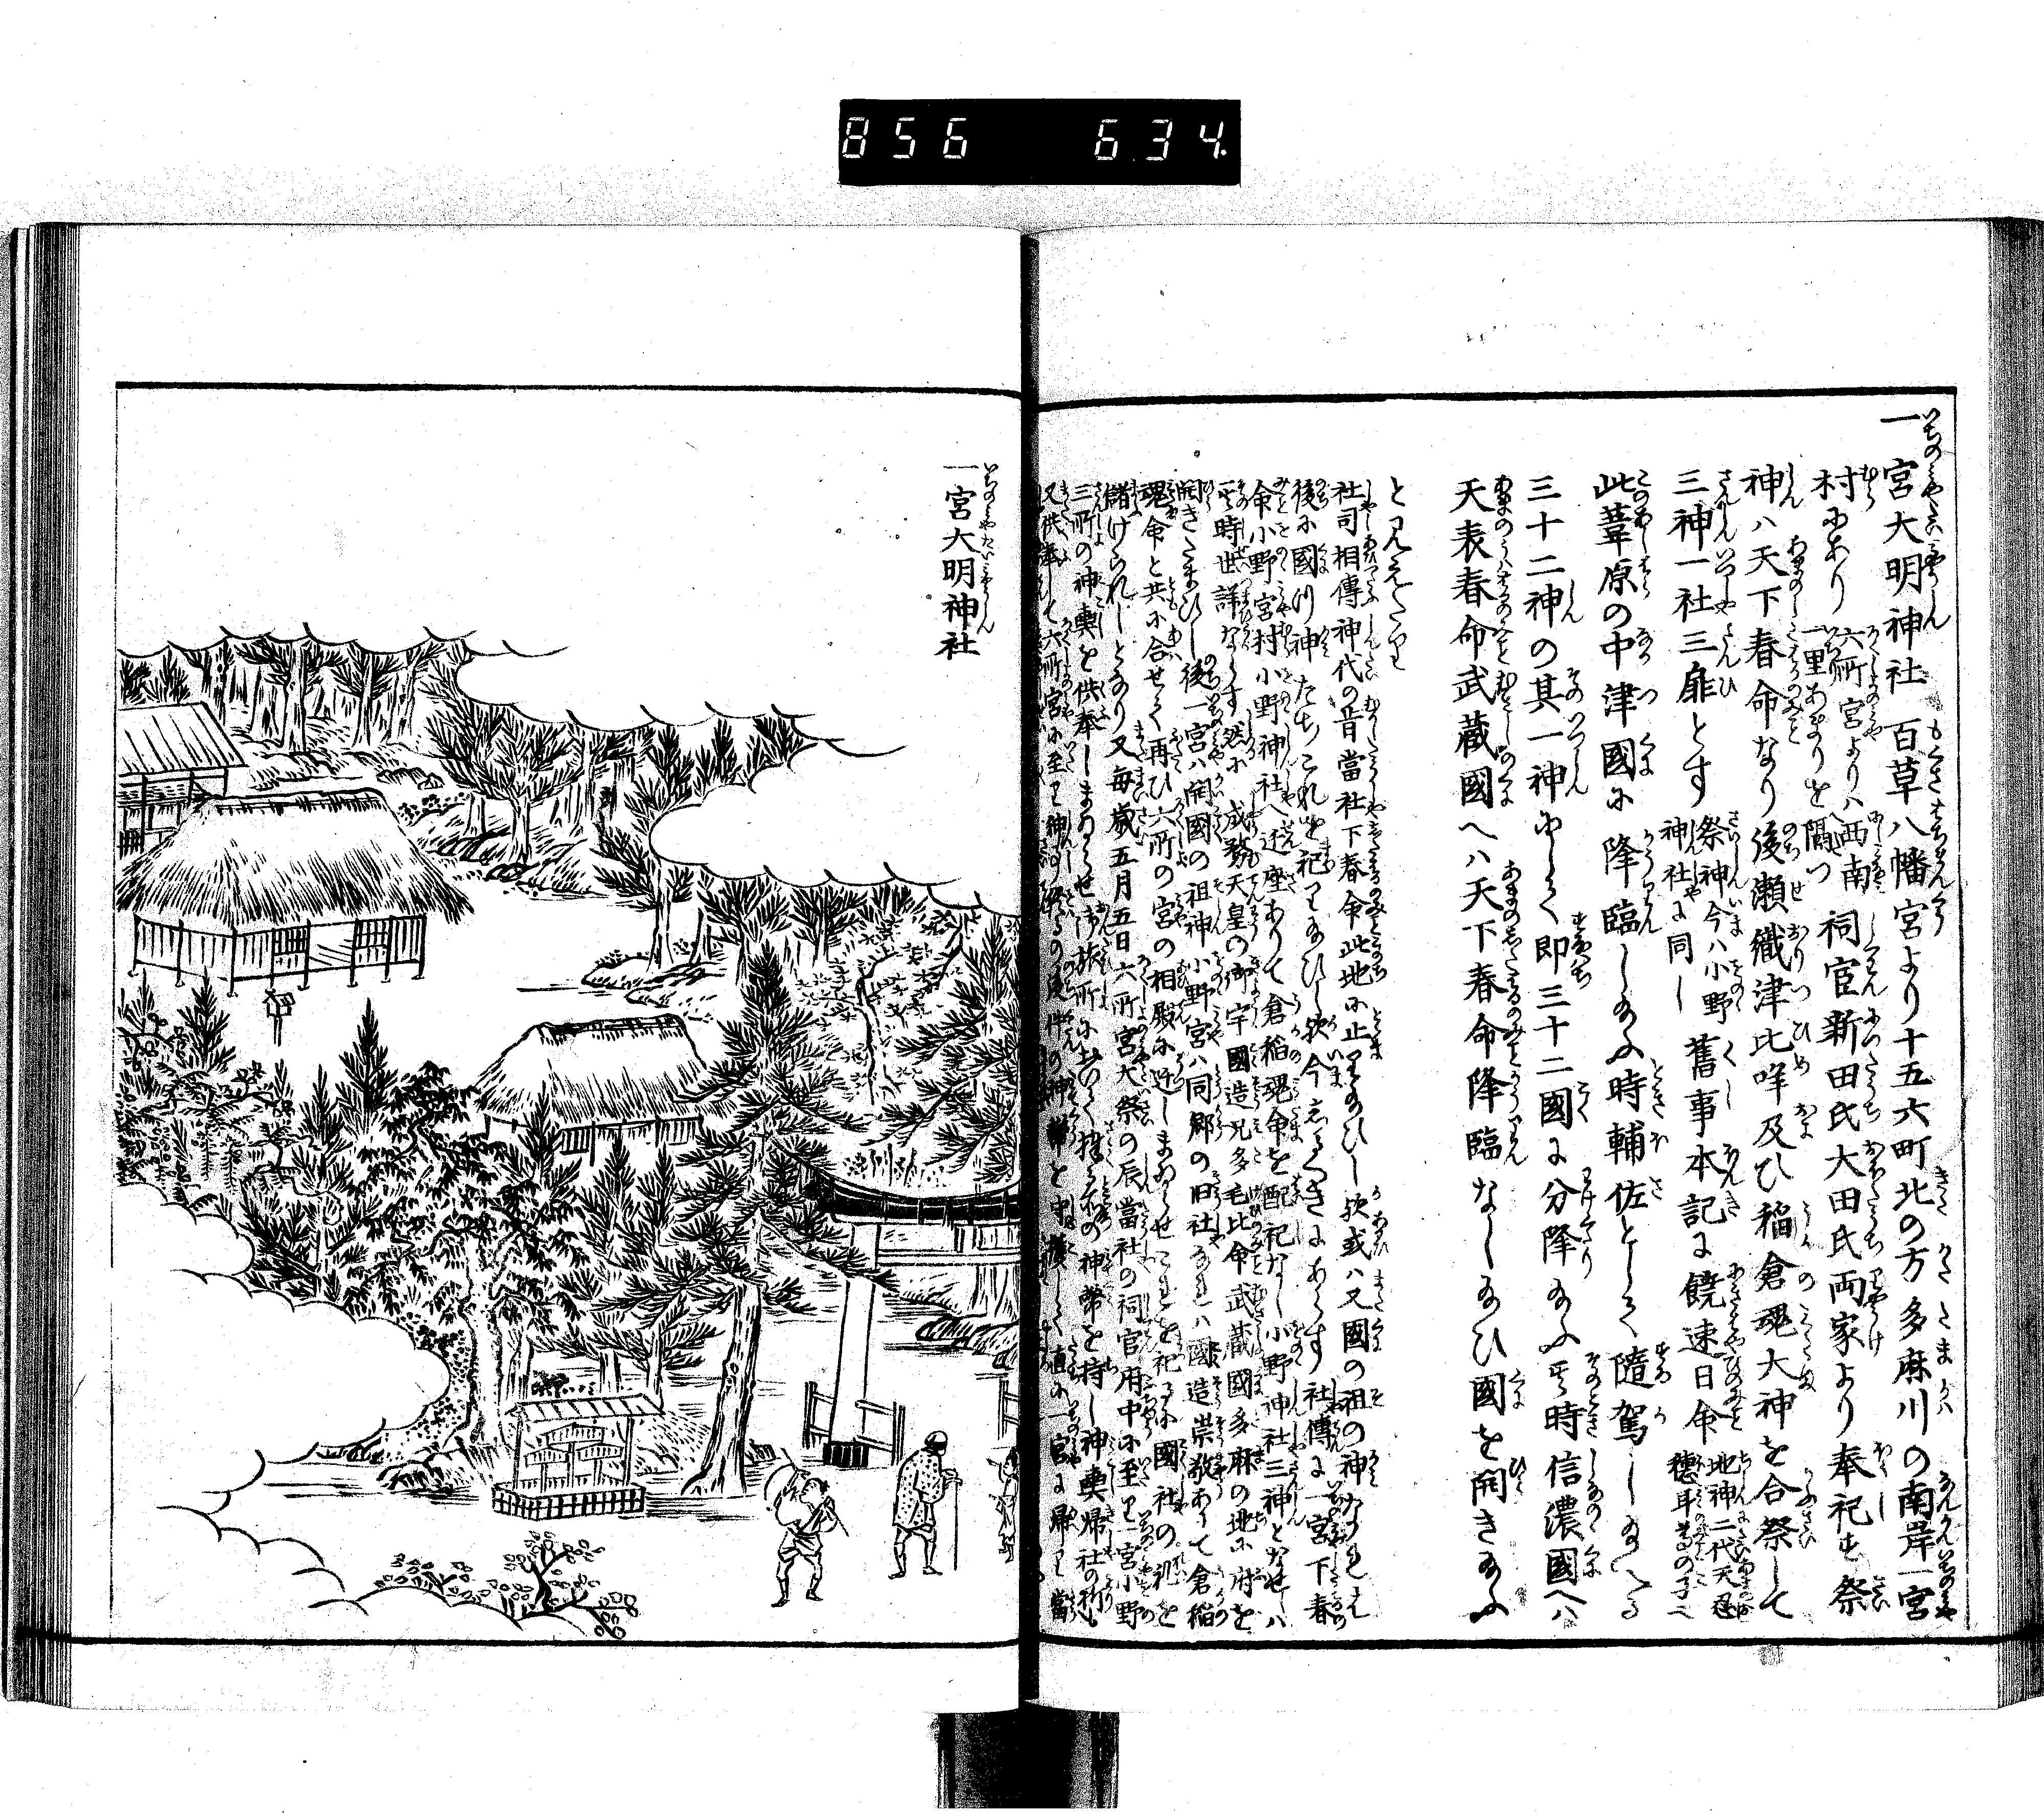 856 634
一宮大明神社 百草八幡宮より十五六町北の方多麻川の南岸一宮
村にあり 六所宮よりハ西南 一里あまりを隔つ 祠官新田氏大田氏両家より奉祀す祭
神ハ天下春命なり後瀬織津比咩及ひ稲倉魂大神を合祭して
三神一社三扉とす 祭神今ハ小野 神社に同し 舊事本記に饒速日命 地神二代天忍 穂耳尊の子
此葦原の中津國に降臨し給ふ時輔佐として隨駕し給へる
三十二神の其一神にして即三十二國に分降給ふ其時信濃國へハ
天表春命武蔵國へハ天下春命降臨なし給ひ國を開き給ふ
と見えたり
社司相傳神代の昔當社下春命此地に止り給ひし欤或ハ又國の祖の神なれは
後に國つ神たちこれを祀り給ひし欤今知へきにあらす社傳に一宮下春
命小野宮村小野神社へ遷座ありて倉稲魂命を配祀なし小野神社三神となせしハ
其時世詳ならす然に成務天皇の御宇國造兄多毛比命武蔵國多麻の地に府を
開きたまひし後一宮ハ開國の祖神小野宮ハ同郷の旧社なれハ國造崇敬ありて倉稲
魂命と共に合せて再ひ六所の宮の相殿に遷しまゐらせこれを祀る故に國社の礼を
儲けられしとなり又毎歳五月五日六所宮大祭の辰當社の祠官府中に至り一宮小野
三所の神輿を供奉しまゐらせ御旅所に於て捧る所の神幣を持し神輿帰社の折も
又供奉して六所宮に至り神
一宮大明神社